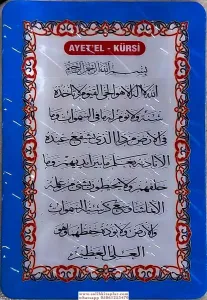 AYET'EL - KÜRSİ
بسم الله الرحمن الرحيم
الله لا اله الا هو الحي القيوم لا تاخذه
سنة ولا نوم له ما في السموات وما
في الارض من ذا الذي يشفع عنده
الا باذنه يعلم ما بين ايديهم وما
خلفهم ولا يحيطون بشئ من علمه
الا بما شاء وسع كرسيه السموات
والارض ولا يؤده حفظهما وهو
العلي العظيم